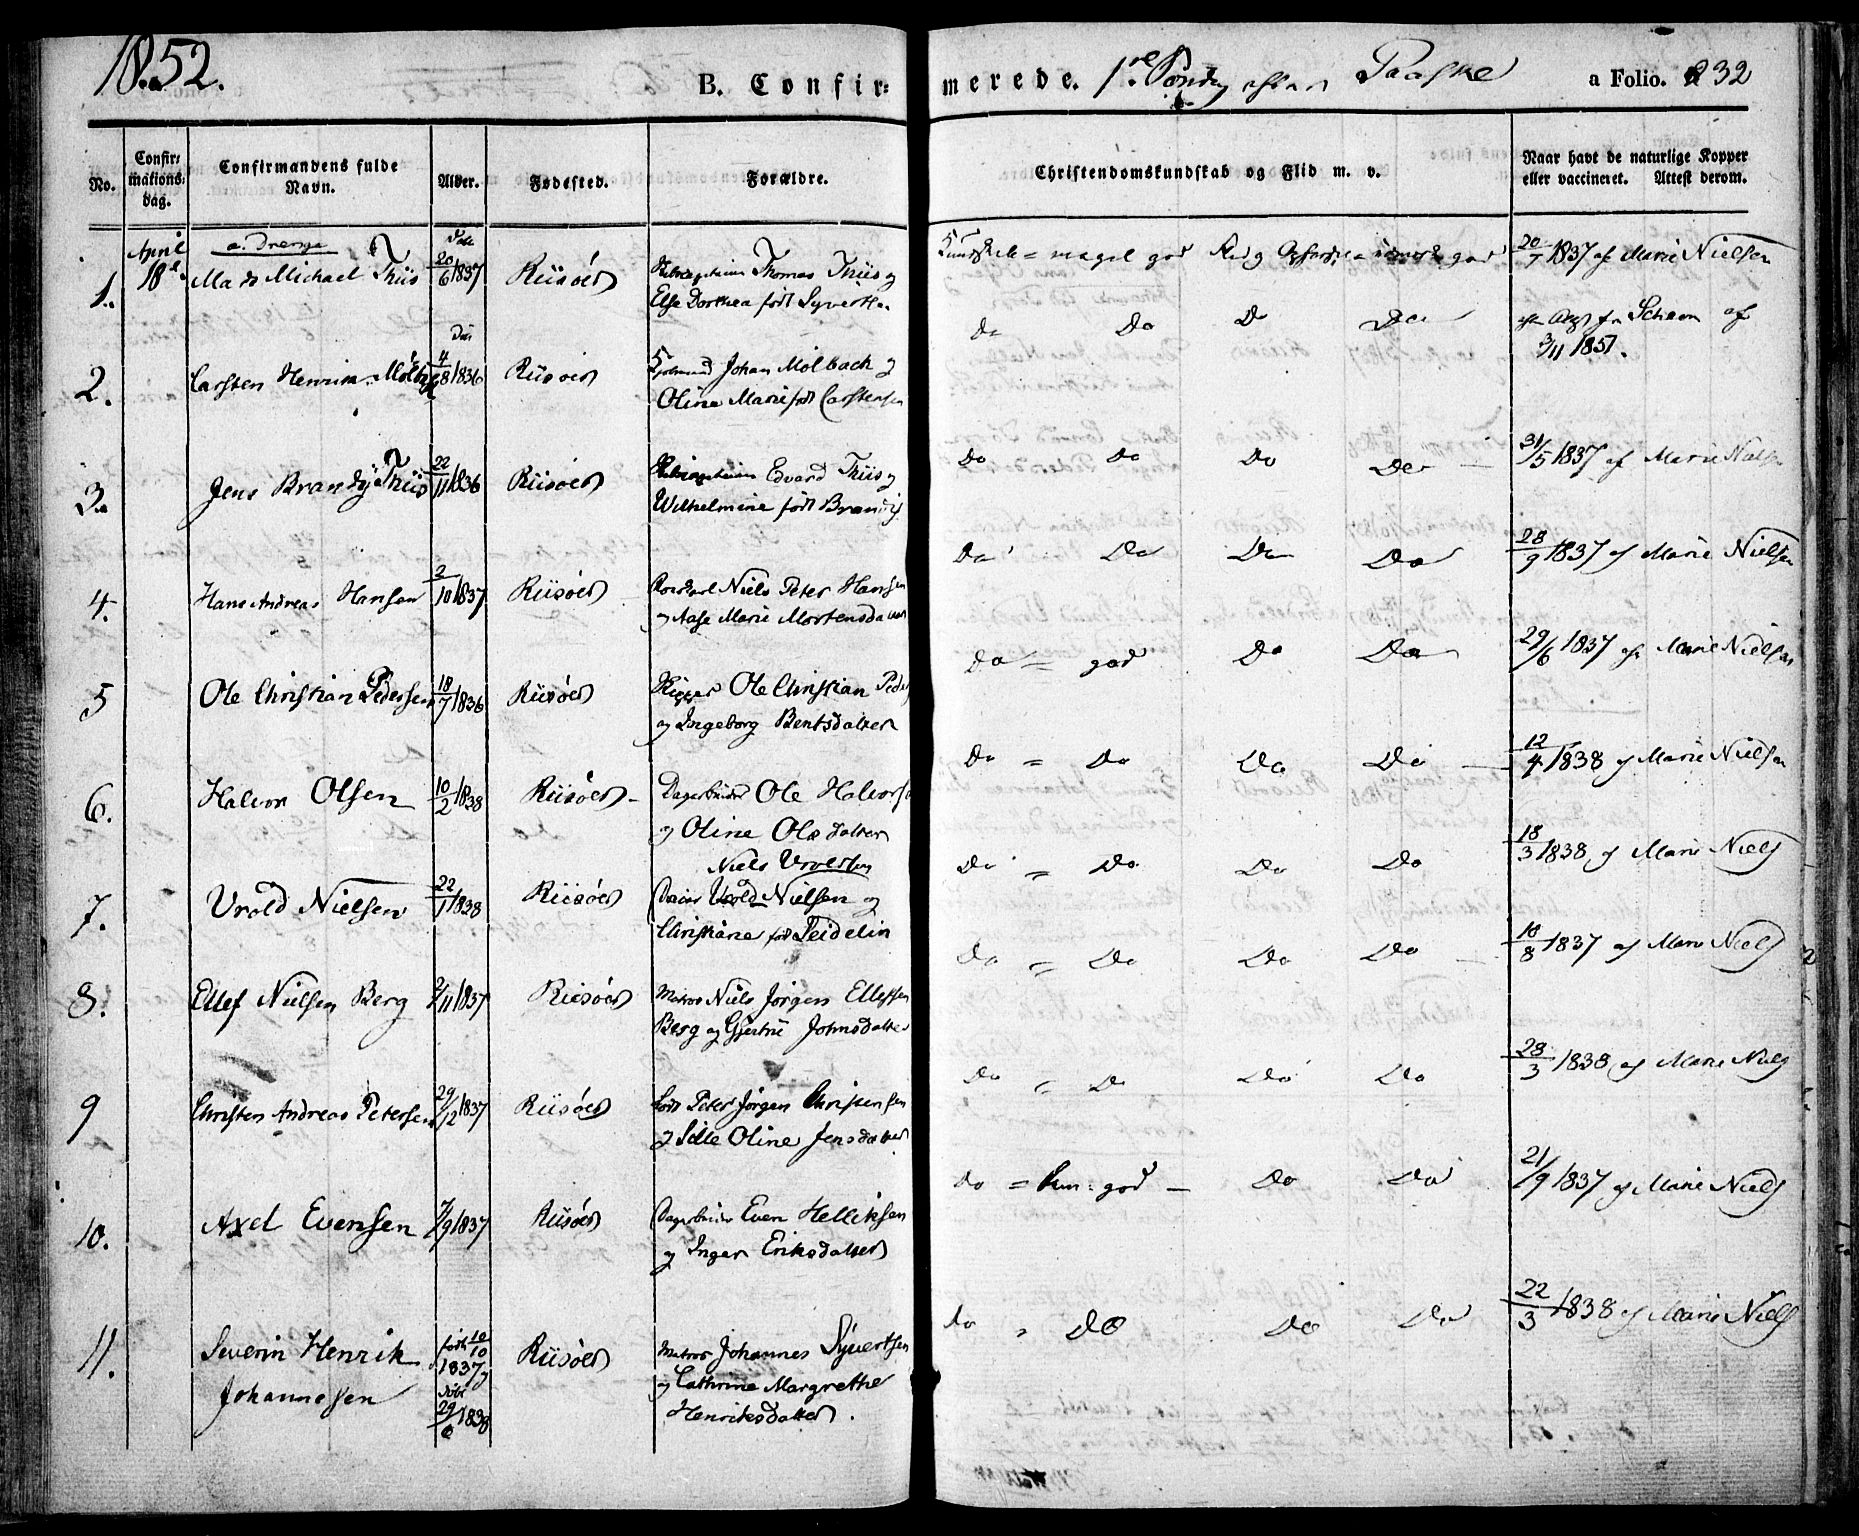 1852.
B. Confirmerede. 1ste Søndag efter Paaske
a Folio. 232
No.
Confirmations-dag.
Confirmandens fulde Navn.
Alder.
Fødested.
Forældre.
Christendomskundskab og Flid m. v.
Naar havt de naturlige Kopper eller vaccineret. Attest derom.
April 18de
a. Drenge
1. Mads Michael Thiis 20/6 1837 Riisøer Thomas Thiis og
Else Dorthea født Syverts
meget god 20/7 1837 af Marie Nielsen
2. Carsten Henrik Molbach 4/8 1836 Riisøer Johan Molbach og
Oline Marie født Carstensen
Do Do Do Do Scheen af
3/11 1851.
3. Jens Brandy Thiis 22/11 1836 Riisøer Edvard Thiis og
Wilhelmine født Brandy
Do Do Do Do 31/5 1837 af Marie Nielsen
4. Hans Andreas Hansen 2/10 1837 Riisøer Niels Peter Hansen
og Aase Marie Mortensdatter
Do Do Do Do 28/9 1837 af Marie Nielsen
5 Ole Christian Pedersen 18/7 1836 Riisøer Rigger Ole Christian Peders
og Ingeborg Bentsdatter
Do = god Do Do 29/6 1837 af Marie Nielsen
6. Halvor Olsen 10/2 1838 Riisøer Dagarbeider Ole Halvors
og Oline Olsdatter
Do = Do Do Do 12/4 1838 af Marie Nielsen
7. Vrold Nielsen 22/1 1838 Riisøer Niels Vroldsen
Vrold Nielsen og
Christiane født Seidelin
Do = Do Do Do 18/3 1838 af Marie Niels
8. Ellef Nielsen Berg 2/11 1837 Riisøer Matros Niels Jørgen Ellefsen
Berg og Gjertrue Johnsdatter
Do = Do Do Do 18/8 1837 af Marie Niels
9 Christen Andreas Petersen 29/12 1837 Riisøer Lods Peter Jørgen Christensen
og Sille Oline Jensdatter
Do = Do Do Do 28/3 1838 af Marie Niels
10. Axel Evensen 7/9 1837 Riisøer Dagarbeider Even Helliksen
og Inger Eriksdatter
Do = kun god Do Do 21/9 1837 af Marie Niels
11. Severin Henrik
Johannesen født 10/10
1837 og
døbt
29/ 1838 Riisøer Matros Johannes Syvertsen
og Cathrine Margrethe
Henriksdatter.
do Do Do Do 22/3 1838 af Marie Niels